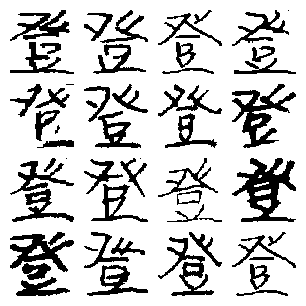 登登登登
登登登登
登登登登
登登登登